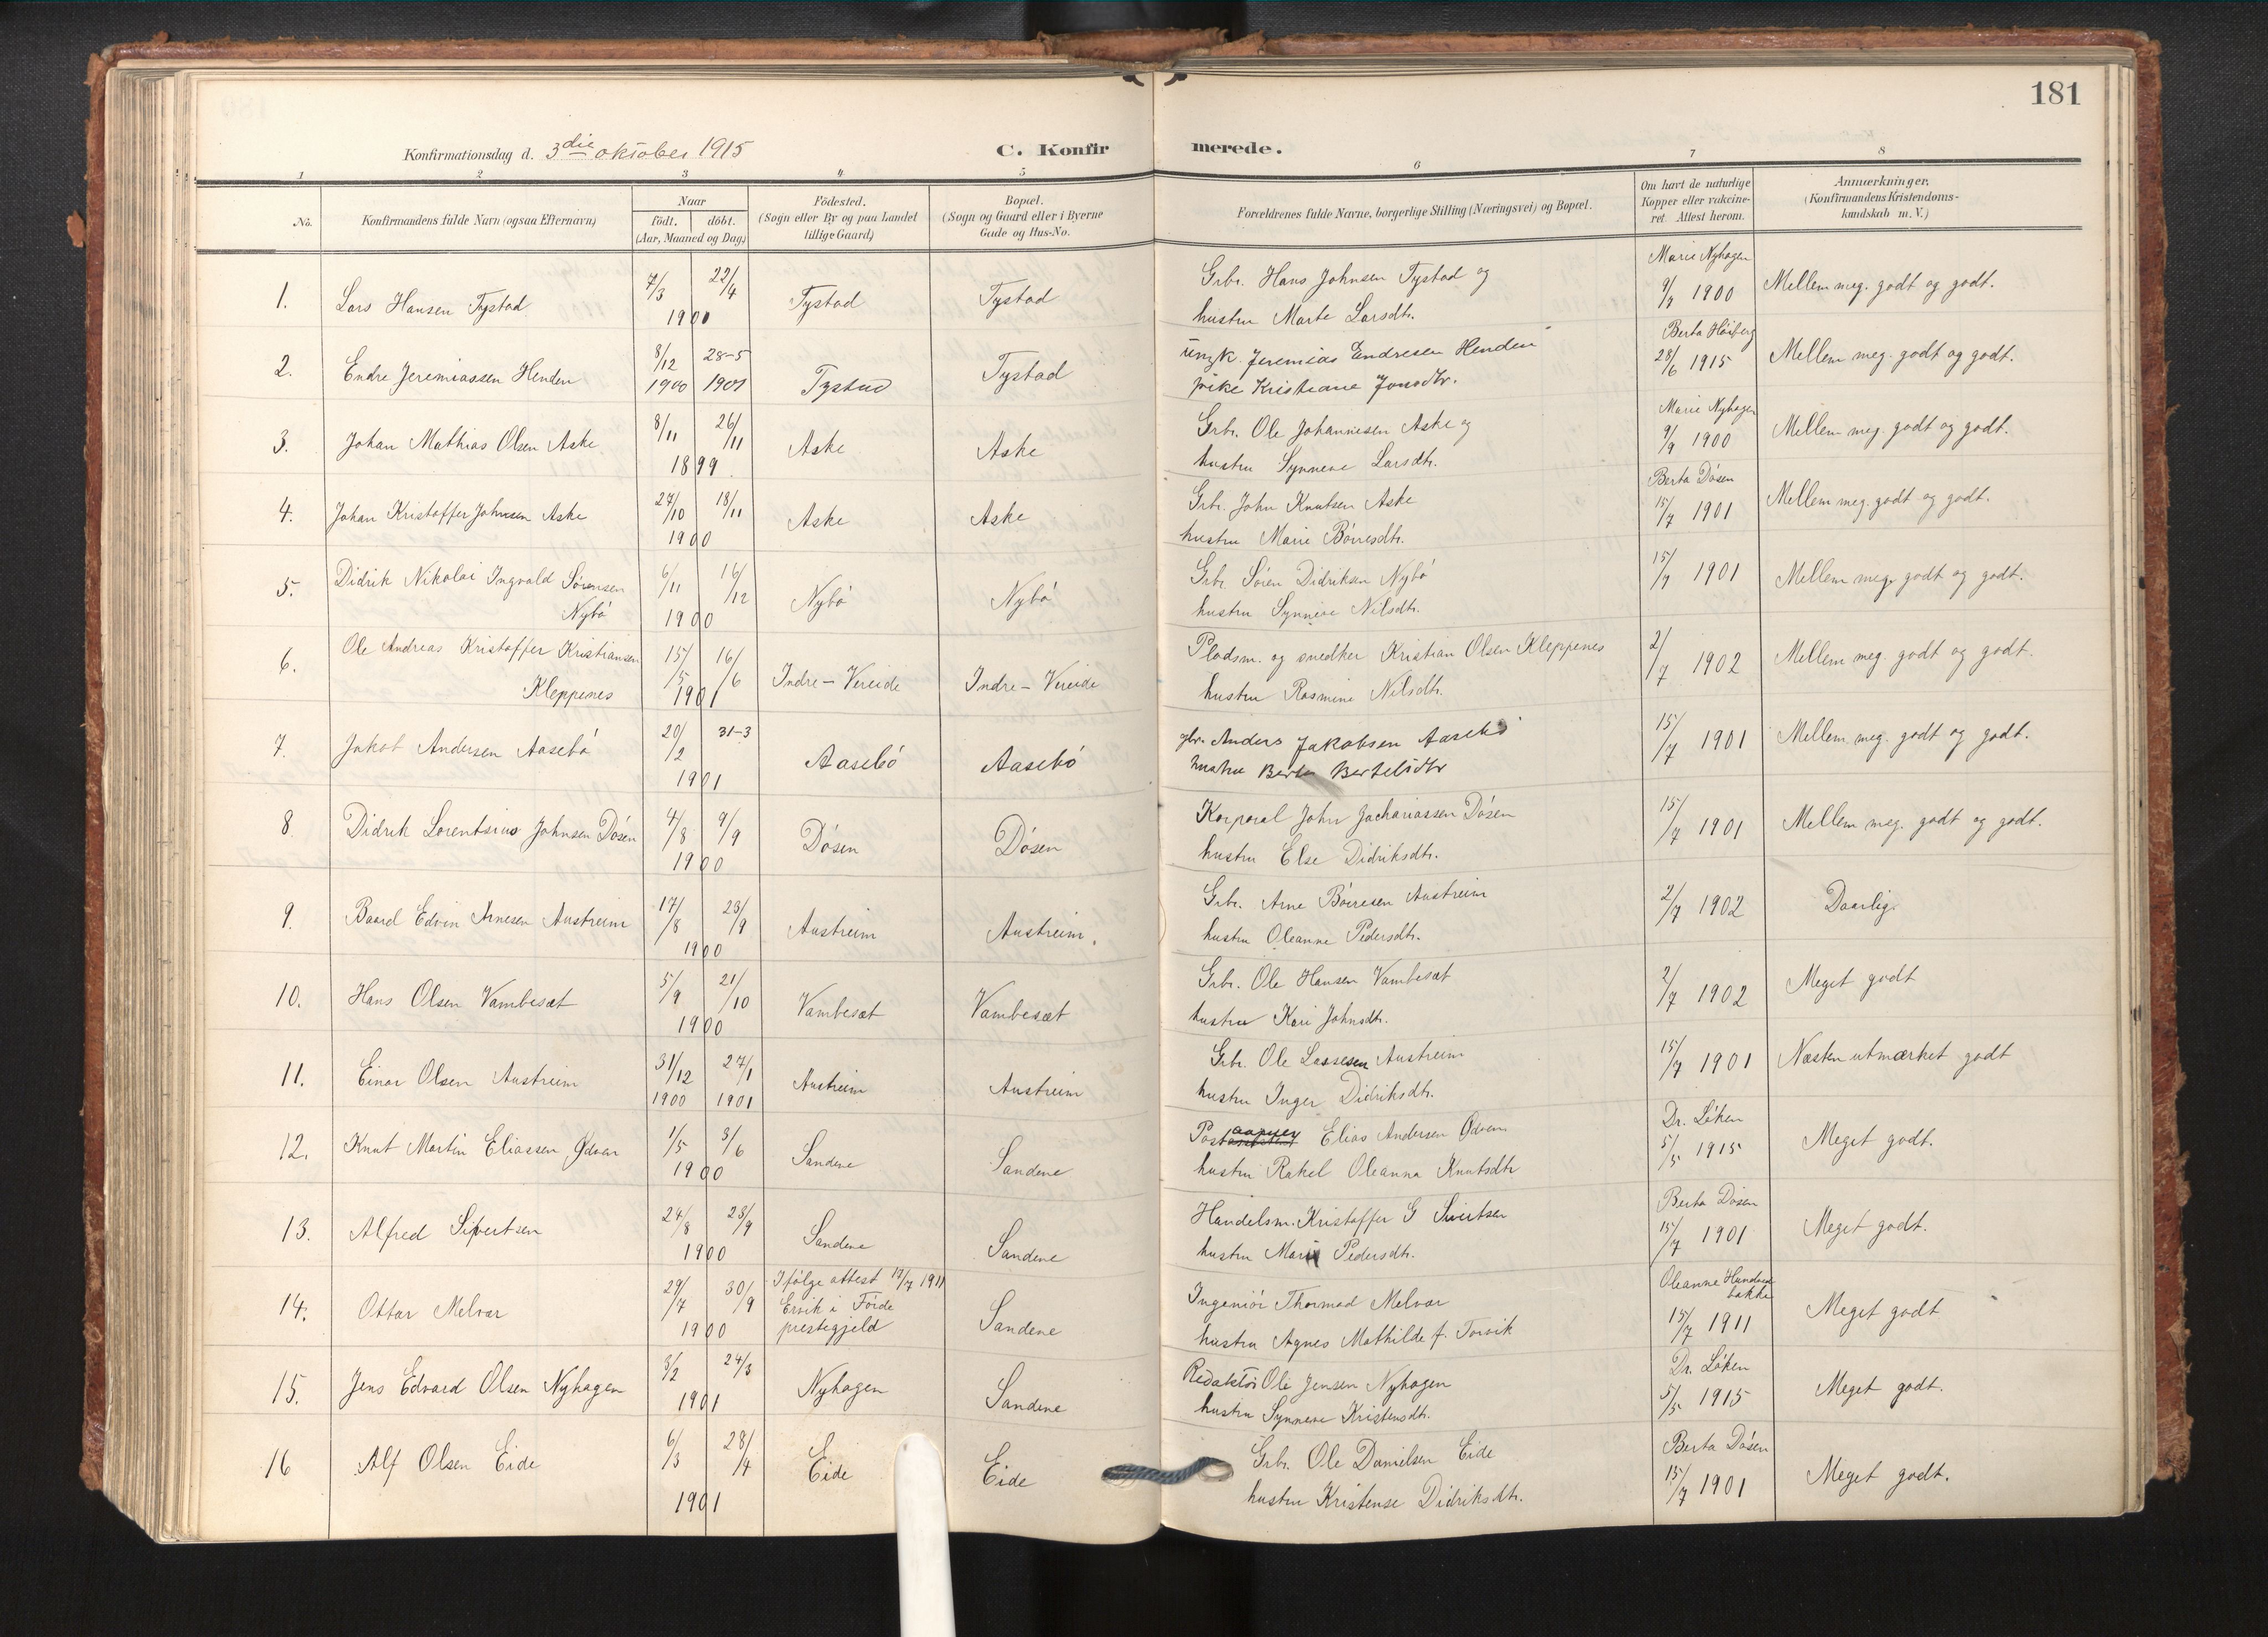 181
Konfirmationsdag d. 3die oktober 1915
C. Konfirmerede.
1 2 3 4 5 6 7 8
No.
Konfirmandens fulde Navn (ogsaa Efternavn)
Naar
födt. döbt.
(Aar, Maaned og Dag)
Födested.
(Sogn eller By og paa Landet
tillige Gaard)
Bopæl.
(Sogn og Gaard eller i Byerne
Gade og Hus-No.
Forældrenes fulde Navne, borgerlige Stilling (Næringsvei) og Bopæl.
Om havt de naturlige
Kopper eller vakcine-
ret. Attest herom.
Anmærkninger.
(Konfirmandens Kristendoms-
kundskab m. V.)
1. Lars Hansen Tystad 7/3 22/4 1900 Tystad Tystad
Grbr. Hans Johnsen Tystad og
hustru Marte Larsdtr.
Marie Nyhagen
9/9 1900
Mellem meg. godt og godt.
2. Endre Jeremiassen Henden 8/12 1900 28-5 1901 Tystad Tystad
ungk. Jeremias Endresen Henden
pike Kristiane Jonsdtr.
Berta Høiberg
28/6 1915
Mellem meg. godt og godt.
3. Johan Mathias Olsen Aske 8/11 26/11 1899. Aske Aske
Grbr. Ole Johannesen Aske og
hustru Synneve Larsdtr.
Marie Nyhagen
9/9 1900
Mellem meg. godt og godt.
4. Johan Kristoffer Johnsen Aske 27/10 18/11 1900 Aske Aske
Grbr. John Knutsen Aske
hustru Marie Börresdtr.
Berta Dösen
15/7 1901
Mellem meg. godt og godt.
5. Didrik Nikolai Ingvald Sörensen
Nybö
6/11 16/12 1900 Nybö Nybö
Grbr. Sören Didriksen Nybö
hustru Synneve Nilsdtr.
15/7 1901
Mellem meg. godt og godt.
6. Ole Andreas Kristoffer Kristiansen
Kleppenes
15/5 16/6 1901 Indre-Vereide Indre-Vereide
Pladsm. og snedker Kristian Olsen Kleppenes
hustru Rasmine Nilsdtr.
2/7 1902
Mellem meg. godt og godt.
7. Jakob Andersen Aasebö 20/2 31-3 1901 Aasebö Aasebö
gbr. Anders Jakobsen Aasebö
hustru Berte Bertelsdtr
15/7 1901
Mellem meg. godt og godt.
8. Didrik Lorentsius Johnsen Dösen 4/8 9/9 1900 Dösen Dösen
Korporal John Jachariassen Dösen
hustru Else Didriksdtr.
15/7 1901
Mellem meg. godt og godt.
9. Baard Edvin Arnesen Austreim 17/8 23/9 1900 Austreim Austreim.
Grbr. Arne Börresen Austreim
hustru Oleanne Pedersdtr.
2/7 1902
Daarlig.
10. Hans Olsen Vambesæt 5/9 21/10 1900 Vambesæt Vambesæt
Grbr. Ole Hansen Vambesæt
hustru Kari Johnsdtr.
2/7 1902
Meget godt
11. Einar Olsen Austreim 31/12 1900 27/1 1901 Austreim Austreim
Grbr. Ole Lassesen Austreim
hustru Inger Didriksdtr.
15/7 1901
Næsten utmærket godt
12. Knut Martin Eliassen Ødven 1/5 3/6 1900 Sandene Sandene
Postaapner Elias Andersen Ødven
hustru Rakel Oleanna Knutsdtr
Dr. Löken
5/5 1915
Meget godt.
13. Alfred Sivertsen 24/8 23/9 1900 Sandene Sandene
Handelsm. Kristoffer G Sivertsen
hustru Marie Pedersdtr.
Berta Dösen
15/7 1901
Meget godt.
14. Ottar Melvær 29/7 30/9 1900
Ifölge attest 17/7 1911
Ervik i Förde
prestegjeld
Sandene
Ingeniör Thormod Melvær
hustru Agnes Mathilde f. Torvik
Oleanne Hundsed
bakke
15/7 1911
Meget godt
15. Jens Edvard Olsen Nyhagen 3/2 24/3 1901 Nyhagen Sandene
Redaktör Ole Jensen Nyhagen
hustru Synneve Kristensdtr.
Dr. Löken
5/5 1915
Meget godt.
16 Alf Olsen Eide 6/3 28/4 1901 Eide Eide
Grbr. Ole Danielsen Eide
hustru Kristense Didriksdtr.
Berta Dösen
15/7 1901
Meget godt.